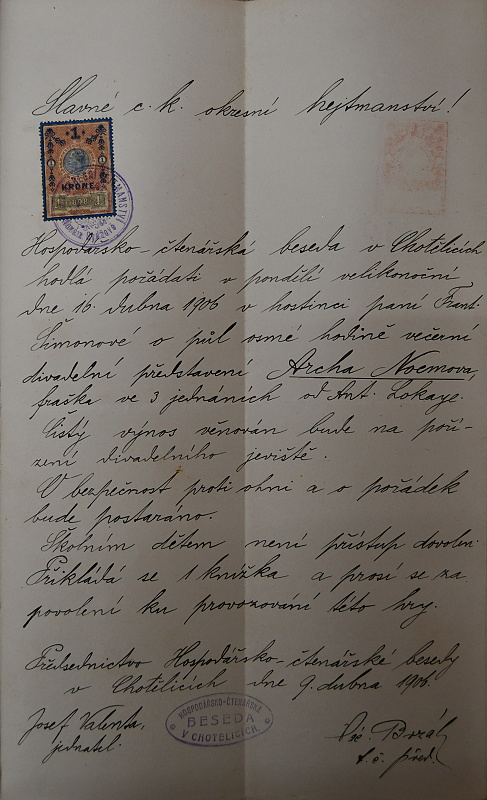 Slavné c. k. okresní hejtmanství!
1
KRONE
1898
Hospodářsko-čtenářská beseda v Chotělicích
hodlá pořádati v pondělí velikonoční
dne 16. dubna 1906 v hostinci paní Frant.
Šimonové o půl osmé hodině večerní
divadelní představení Archa Noemova,
fraška ve 3 jednáních od Ant. Lokaye.
Čistý výnos věnován bude na poří-
zení divadelního jeviště.
O bezpečnost proti ohni a o pořádek
bude postaráno.
Školním dětem není přístup dovolen.
Přikládá se 1 knížka a prosí se za
povolení ku provozování této hry.
Předsednictvo Hospodářsko-čtenářské besedy
v Chotělicích dne 9. dubna 1906.
Josef Valenta,
jednatel.
HOSPODÁŘSKO-ČTENÁŘSKÁ
BESEDA
V CHOTĚLICÍCH.
t. č. před.